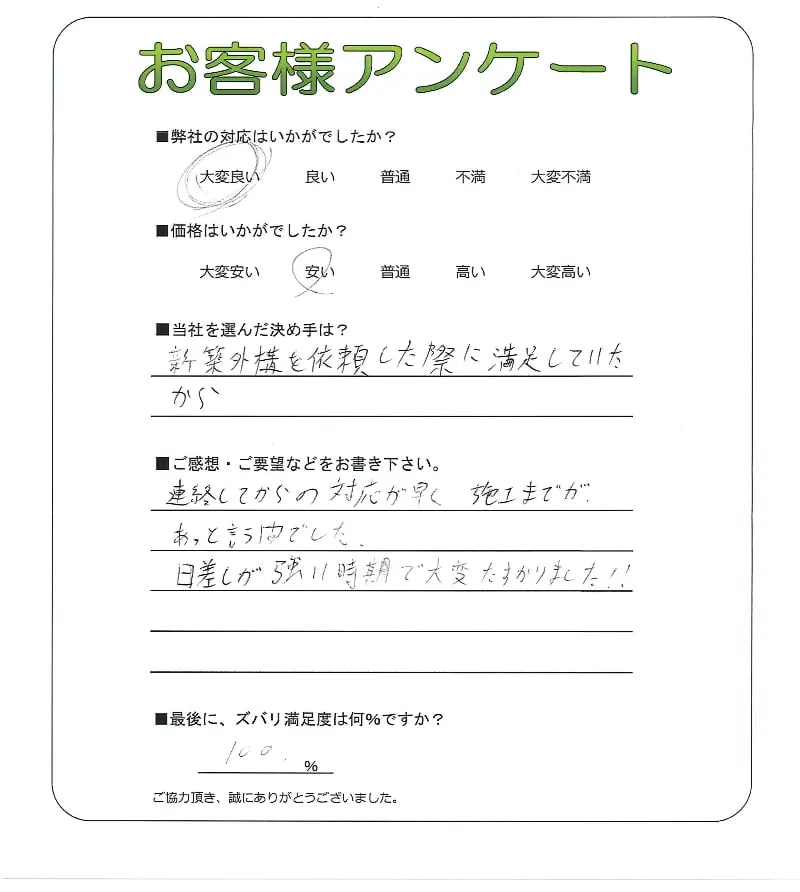 お客様アンケート
■弊社の対応はいかがでしたか？
大変良い 良い 普通 不満 大変不満
■価格はいかがでしたか？
大変安い 安い 普通 高い 大変高い
■当社を選んだ決め手は？
新築外構を依頼した際に満足していた
から
■ご感想・ご要望などをお書き下さい。
連絡してからの対応が早く 施工までが
あっと言う間でした。
日差しが強い時期で大変たすかりました!!
■最後に、ズバリ満足度は何%ですか？
100. %
ご協力頂き、誠にありがとうございました。